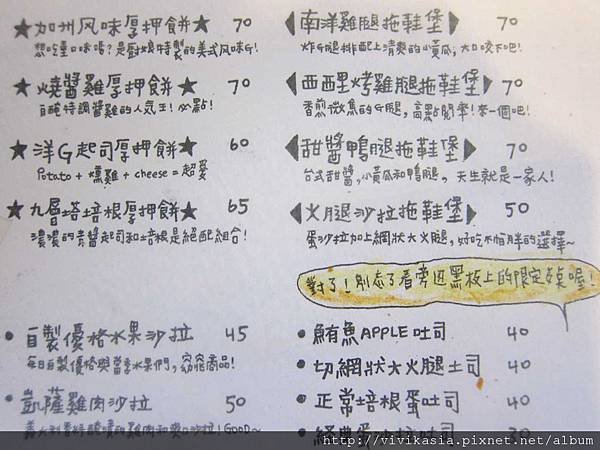 ★加州风味厚押餅★ 70
想吃重口味嗎?是廚娘特製的美式风味G!
★燒醬雞厚押餅★ 70
自醃特調醬雞的人気王!必點!
★洋G起司厚押餅★ 60
Potato + 燻雞 + cheese = 超愛
★九層塔培根厚押餅★ 65
濃濃的青醬起司和培根是絕配組合!
• 自製優格水果沙拉 45
每日自製優格與當季水果們,窈窕商品!
• 凱薩雞肉沙拉 50
義大利香料醃漬的雞肉和爽口沙拉!GOOD~
◀南洋雞腿拖鞋堡▶ 70
炸G腿排配上清爽的小黃瓜,大口咬下吧!
◀西西里烤雞腿拖鞋堡▶ 70
香煎微焦的G腿,高點閱率!來一個吧!
◀甜醬鴨腿拖鞋堡▶ 70
台式甜醬,小黃瓜和鴨腿,天生就是一家人!
◀火腿沙拉拖鞋堡▶ 50
蛋沙拉加上網狀大火腿,好吃不怕胖的選擇~
對了!別忘了看旁边黑板上的限定菜喔!
• 鮪魚APPLE吐司 40
• 切網狀大火腿土司 40
• 正常培根蛋吐司 40
• 經典蛋沙拉吐司 30
http://vivikasia.pixnet.net/album